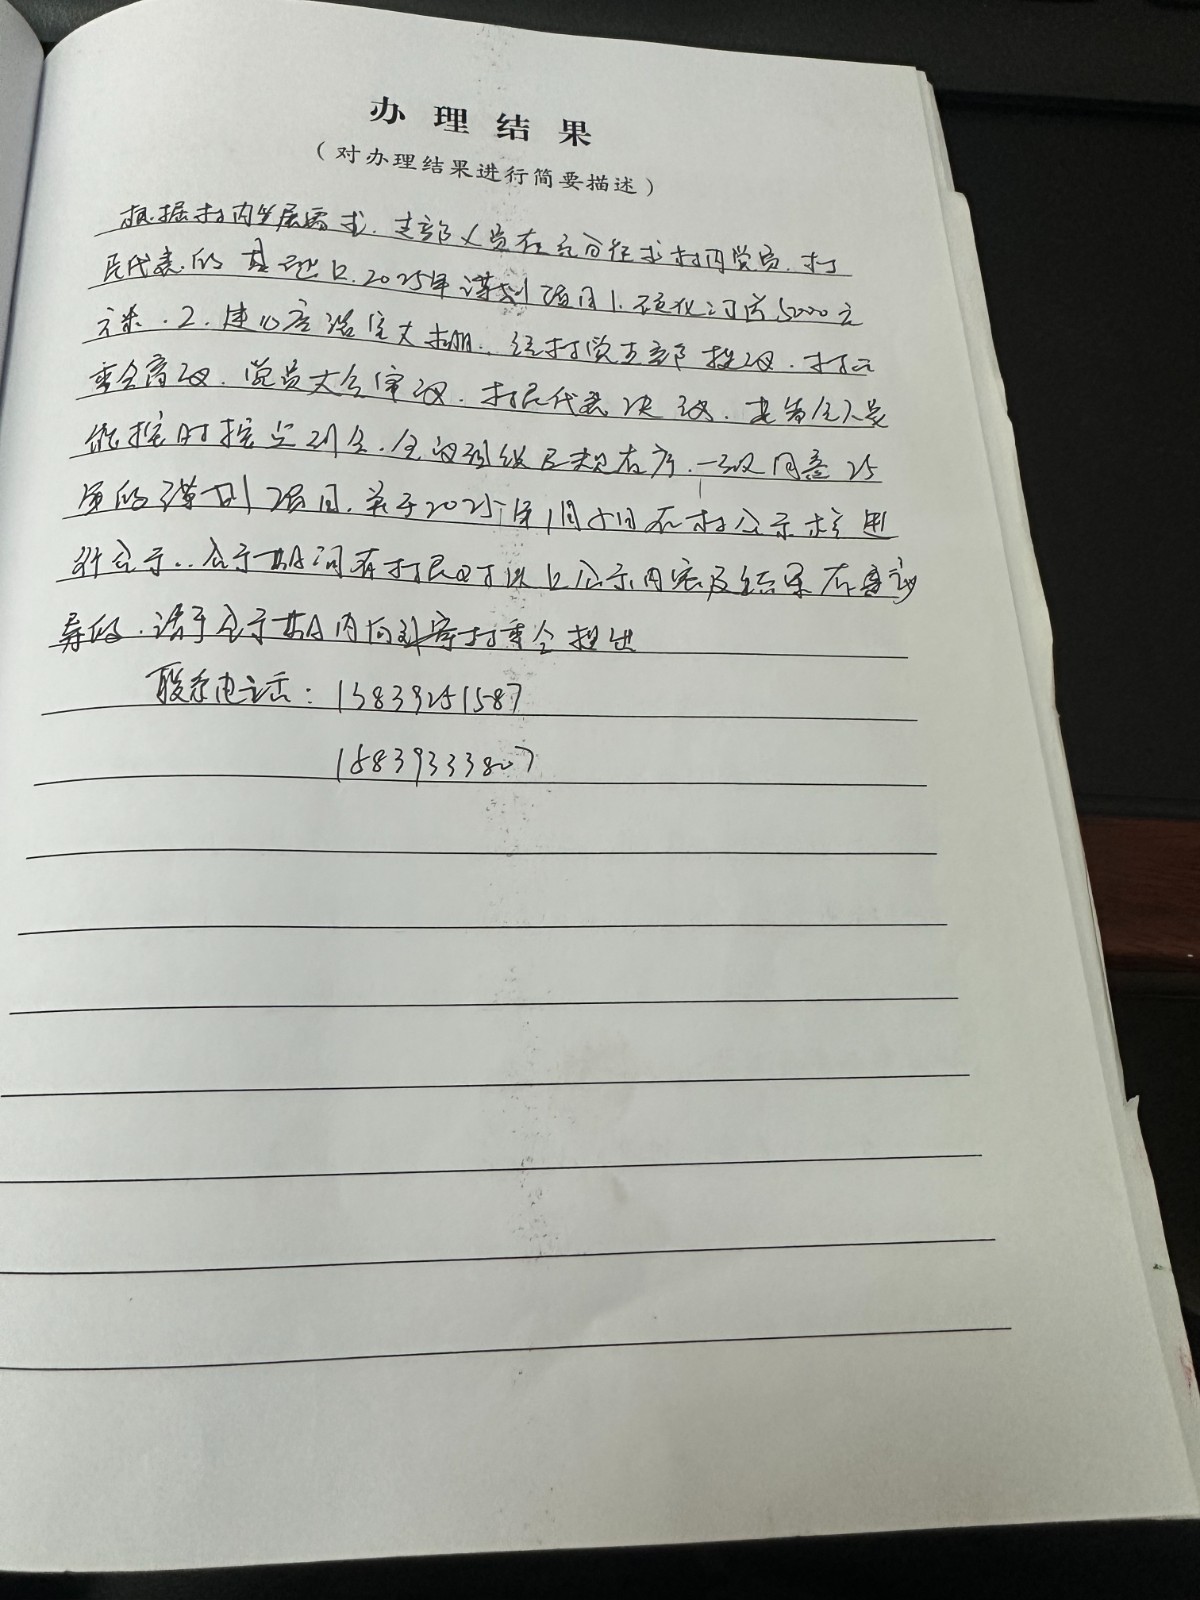 办理结果
（对办理结果进行简要描述）
根据村内发展需求，支部人员在充分征求村内党员、村
民代表的基础上，2025年谋划项目1.硬化河沟5000立
方米.2.建心连心大棚，经村党支部提议，村
委会商议，党员大会审议，村民代表决议，参会人员
能按时按点到会，会议纪律及秩序，一致同意25
年的谋划项目，并于2025年1月5日在村公示栏进
行公示，公示期间有村民对以上公示内容及结果有异议
的，请于公示期内向村委会提出
联系电话：13839251587
15839333807